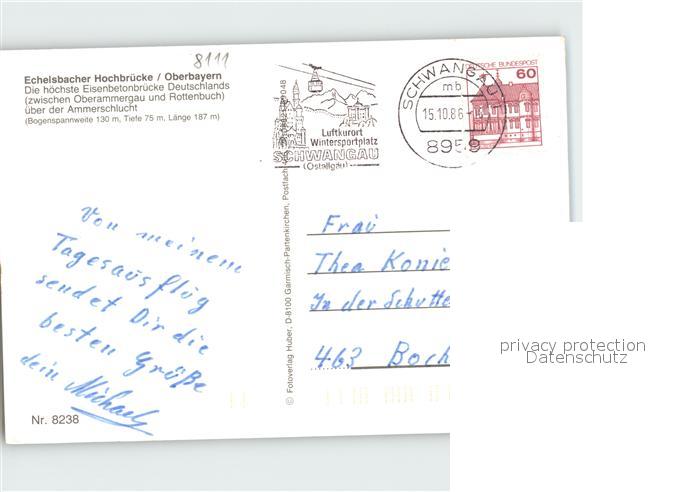 8111
Echelsbacher Hochbrücke / Oberbayern
Die höchste Eisenbetonbrücke Deutschlands
(zwischen Oberammergau und Rottenbuch)
über der Ammerschlucht
(Bogenspannweite 130 m, Tiefe 75 m, Länge 187 m)
Luftkurort
Wintersportplatz
SCHWANGAU
(Ostallgäu)
SCHWANGAU
mb
15.10.86
8959
DEUTSCHE BUNDESPOST
60
Von meinem
Tagesausflug
sendet Dir die
besten Grüße
dein Michael
Nr. 8238
© Fotoverlag Huber, D-8100 Garmisch-Partenkirchen, Postfach
Frau
Thea Konie
In der Schutte
463 Boch
privacy protection
Datenschutz